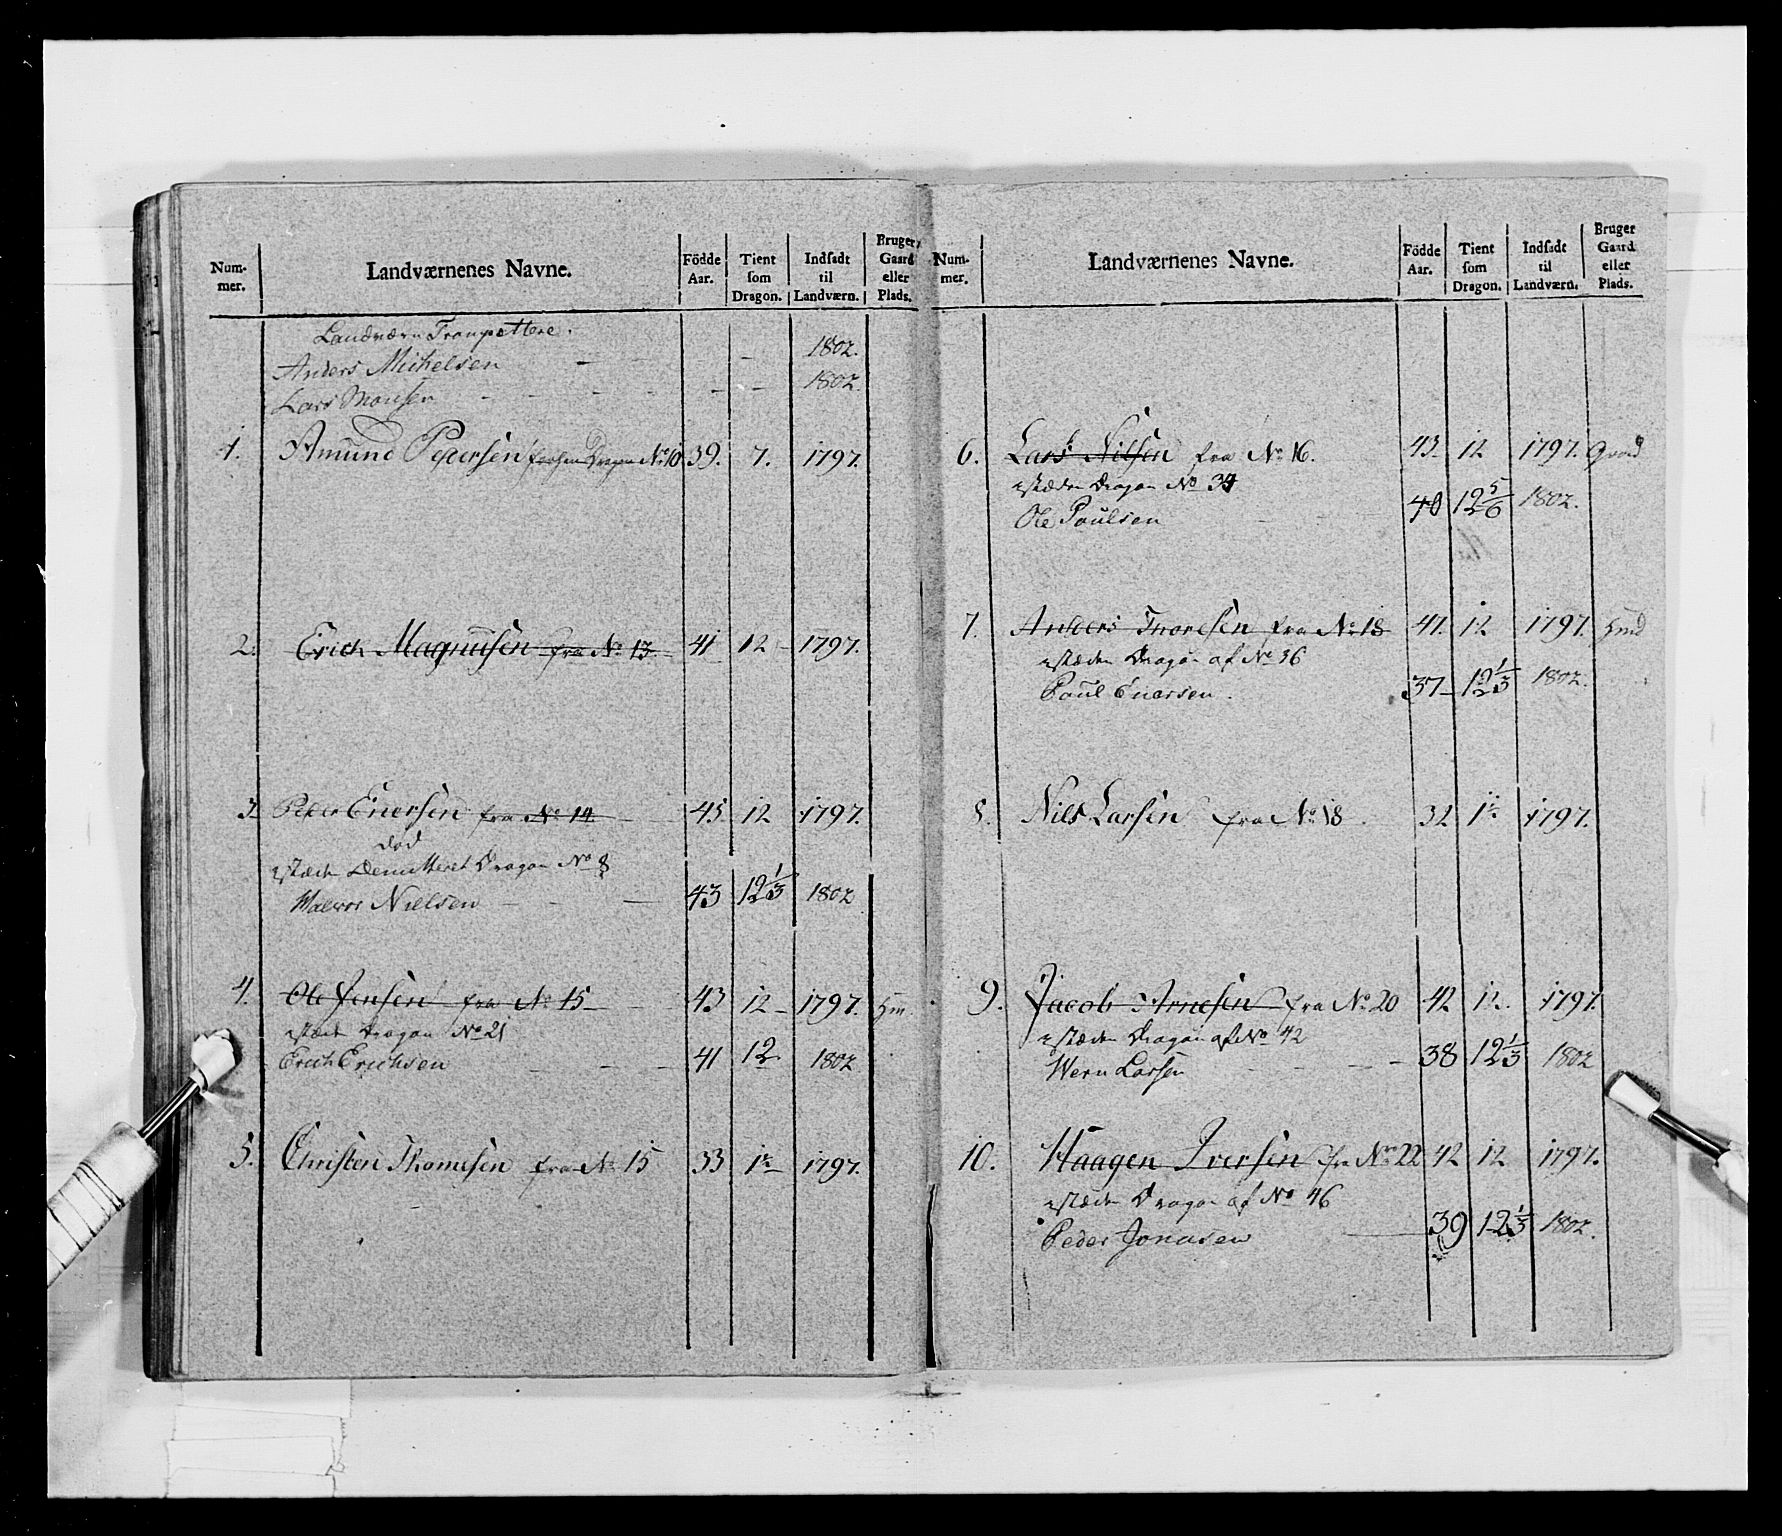 Num-mer. Landværnenes Navne. Födde Aar. Tient som Dragon. Indsadt til Landværn. Bruger Gaard eller Plads.
Landværn Trompettere.
Anders Michelsen — — 1802.
Lars Monsen — — 1802.
1. Amund Pedersen Dragon No 10 39. 7. 1797.
2. Erich Magnussen fra No 13 41 12 1797.
3. Peder Enersen fra No 14 45 12 1797.
død
istæden Demitteret Dragon No 8
Nielsen — 43 12 1/3 1802
4. Ole Jensen fra No 15 43 12 1797.
istæden Dragon No 21
Erich Erichsen — 41 12 1802
5. Christen Thomesen fra No 15 33 12 1797.
Num-mer. Landværnenes Navne. Födde Aar. Tient som Dragon. Indsadt til Landværn. Bruger Gaard eller Plads.
6. Lars Nilsen fra No 16. 43 12 1797.
istæden Dragon No 34
Ole Poulsen 40 12 5/6 1802.
7. Anders Thoresen fra No 18 41. 12 1797.
istæden Dragon af No 36
Poul Enersen. 37 12 1/3 1802.
8. Nils Larsen fra No 18 32 12 1797.
9. Jacob Arnesen fra No 20 42 12. 1797.
istæden Dragon af No 42
Larsen — 38 12 1/3 1802
10. Haagen Iversen fra No 22 42 12 1797.
istæden Dragon af No 46
Peder Jonasen 39 12 1/3 1802.